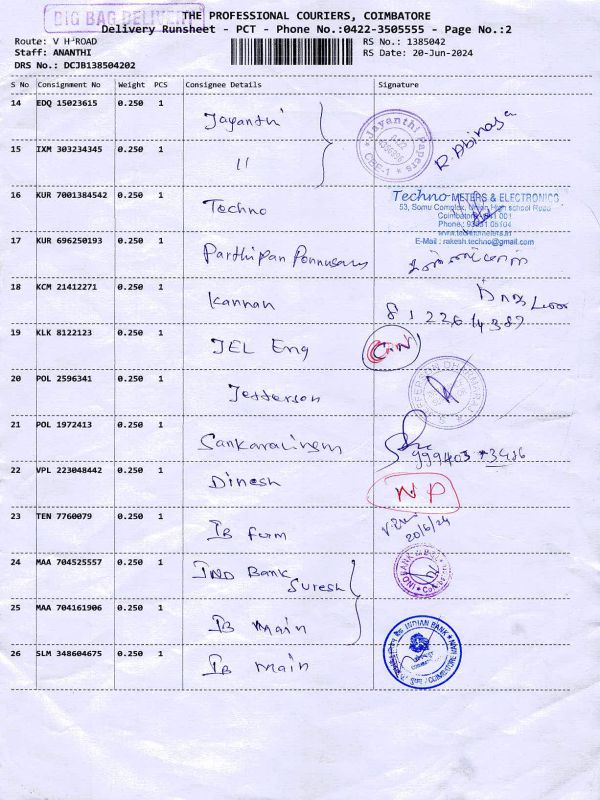 BIG BAG DELIVERY
THE PROFESSIONAL COURIERS, COIMBATORE
Delivery Runsheet - PCT - Phone No.:0422-3505555 - Page No.:2
Route: V H ROAD
Staff: ANANTHI
DRS No.: DCJB138504202
RS No.: 1385042
RS Date: 20-Jun-2024
S No Consignment No Weight PCS Consignee Details Signature
14 EDQ 15023615 0.250 1 Jayanthi
Jayanthi Papers
CBE-1
R. Abinaya
15 IXM 303234345 0.250 1 "
16 KUR 7001384542 0.250 1 Techno
Techno METERS & ELECTRONICS
53, Somu Complex, Union High school Road
Coimbatore - 641 001
www.technometers.in
E-Mail : rakesh.techno@gmail.com
17 KUR 696250193 0.250 1 Parthipan Ponnusamy
18 KCM 21412271 0.250 1 Kannan
19 KLK 8122123 0.250 1 JEL Eng
20 POL 2596341 0.250 1 Jefferson
21 POL 1972413 0.250 1 Sankaralingam
22 VPL 223048442 0.250 1 Dinesh NP
23 TEN 7760079 0.250 1 IB form
20/6/24
24 MAA 704525557 0.250 1 IND Bank
Suresh
25 MAA 704161906 0.250 1 IB main
INDIAN BANK
COIMBATORE MAIN
26 SLM 348604675 0.250 1 IB main